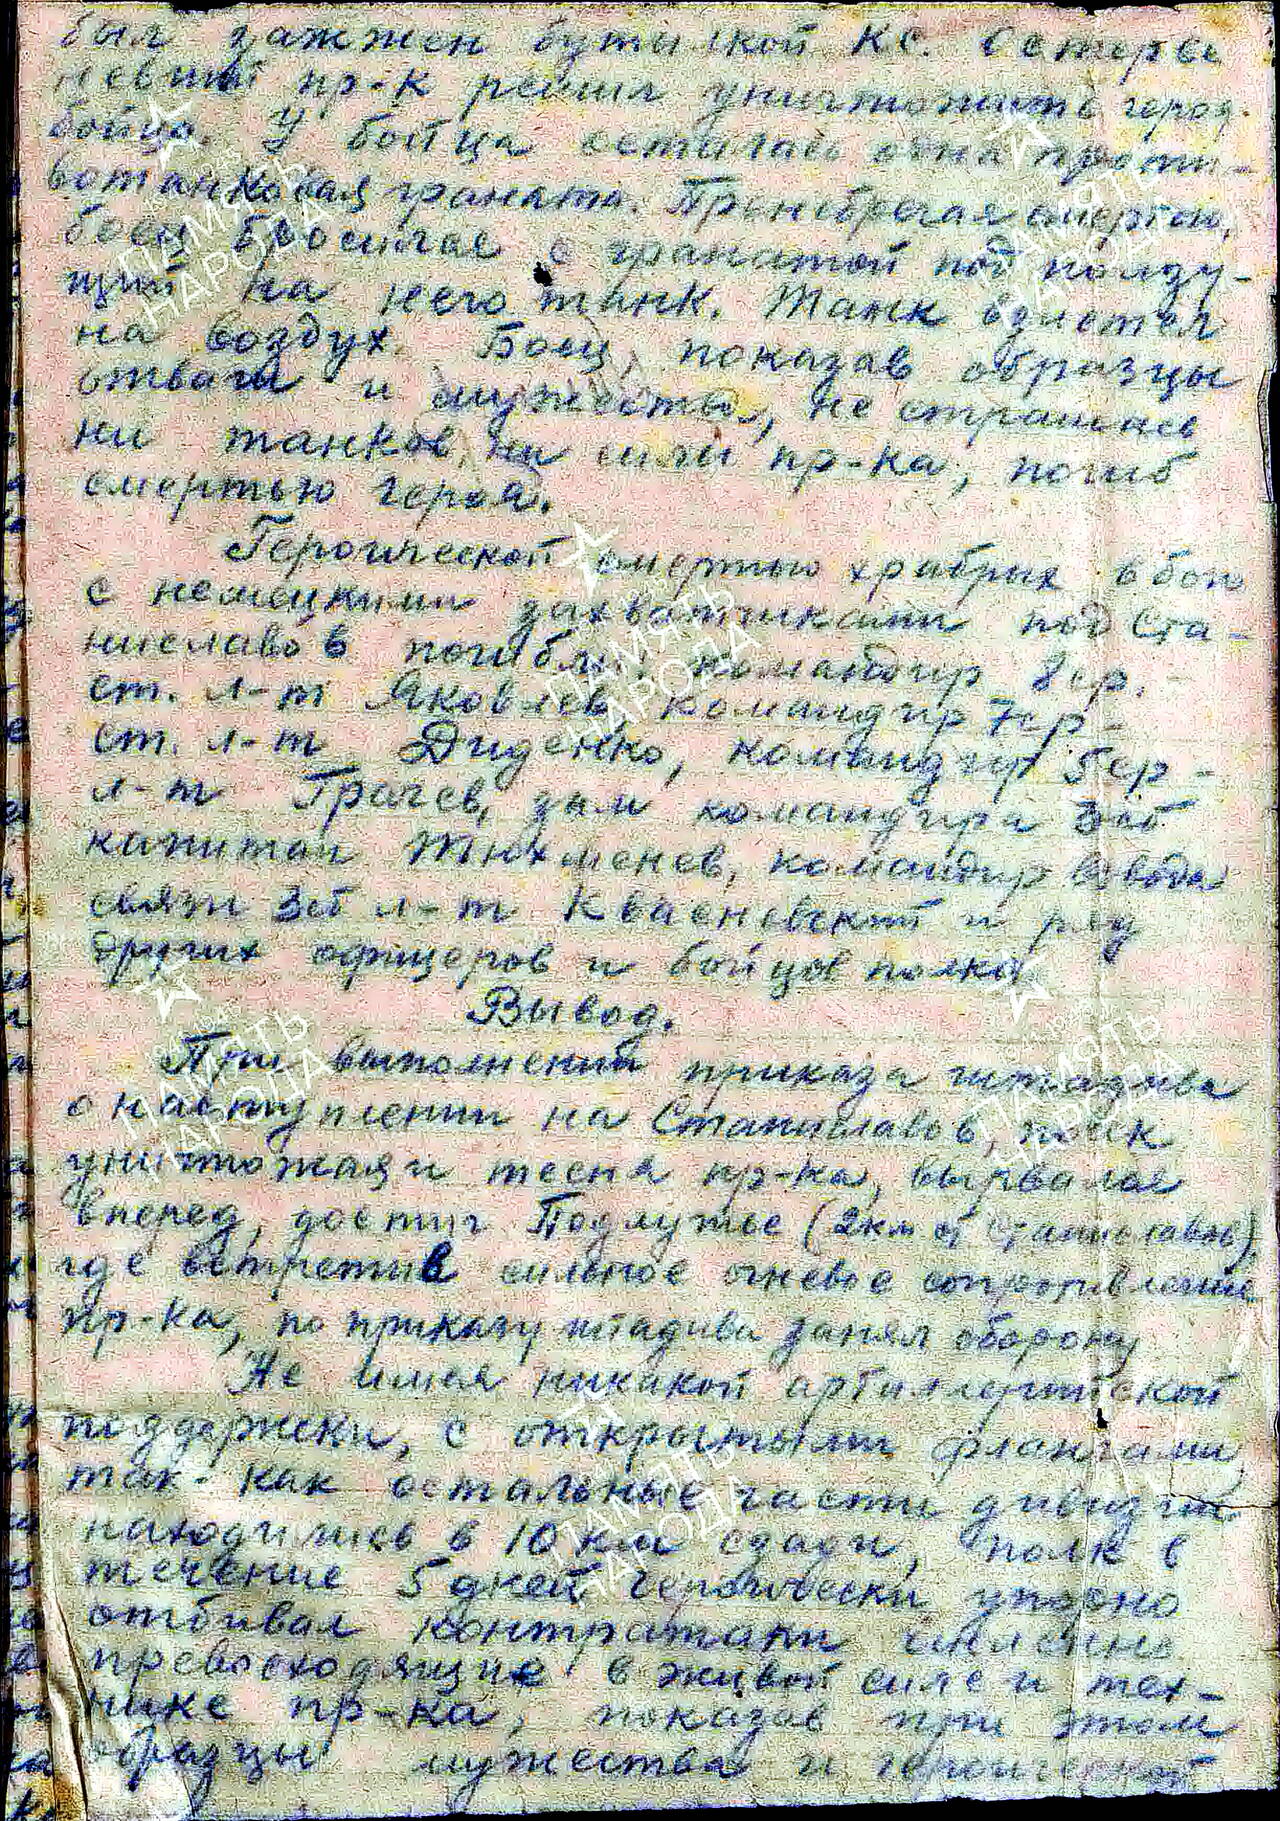 был зажжен бутылкой КС. Остерве
невший пр-к решил уничтожить героя
бойца. У бойца осталась одна проти-
вотанковая граната. Пренебрегая смертью,
боец бросился с гранатой под ползу-
щий на него танк. Танк взлетел
на воздух. Боец, показав образцы
отваги и мужества, не страшась
ни танков, ни силы пр-ка, погиб
смертью героя.
Героической смертью храбрых в бою
с немецкими захватчиками под Ста-
ниславов погибли командир 8ср. -
ст. л-т Яковлев, командир 7ср -
ст. л-т Диденко, командир 5ср -
л-т Грачев, зам командира 3сб
капитан Тюхменев, командир взвода
связи 3сб л-т Квасневский и ряд
других офицеров и бойцов полка
Вывод.
При выполнении приказа штадива
о наступлении на Станиславов, полк
уничтожая и тесня пр-ка, вырвался
вперед, достиг Подлужье (2км от Станиславов)
где встретив сильное огневое сопротивление
пр-ка, по приказу штадива занял оборону
Не имея никакой артиллерийской
поддержки, с открытыми флангами
так-как остальные части дивизии
находились в 10 км сзади, полк в
течение 5 дней героически упорно
отбивал контратаки сильно
превосходящие в живой силе и тех-
нике пр-ка, показав при этом
образцы мужества и героической
ПАМЯТЬ
НАРОДА
ПАМЯТЬ
НАРОДА
ПАМЯТЬ
НАРОДА
ПАМЯТЬ
НАРОДА
ПАМЯТЬ
НАРОДА
ПАМЯТЬ
НАРОДА